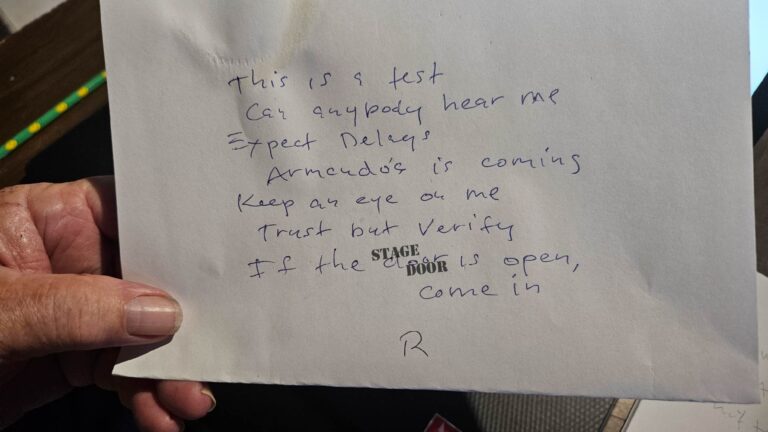 This is a test
Can anybody hear me
Expect Delays
Armando's is coming
Keep an eye on me
Trust but Verify
If the door is open,
STAGE
DOOR
come in
R